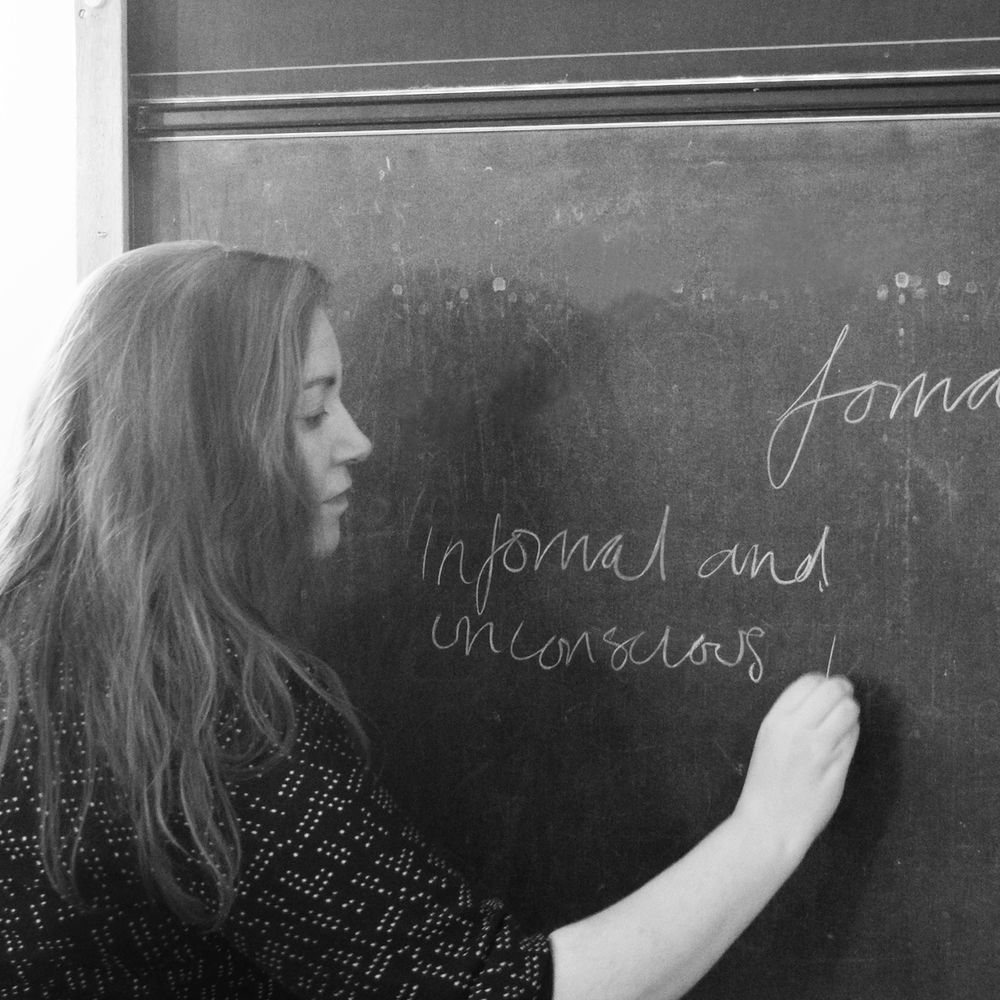 formal
Informal and
unconscious